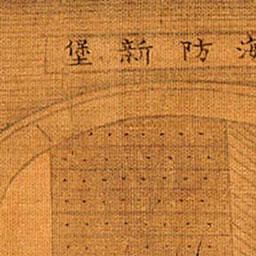 海防新堡